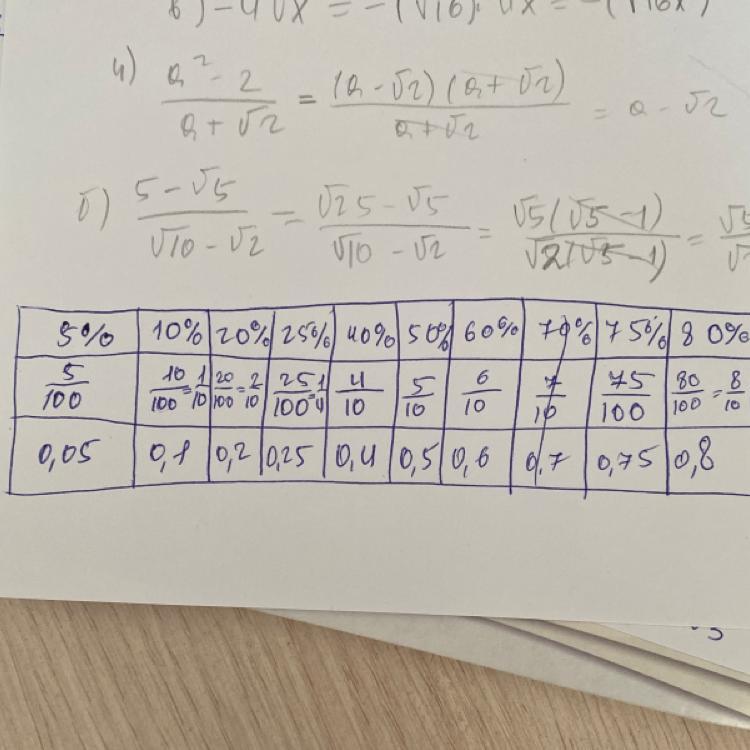 в) -4√x = -(√16)·√x = -(√16x)
и) (a² - 2)/(a + √2) = ((a - √2)(a + √2))/(a + √2) = a - √2
б) (5 - √5)/(√10 - √2) = (√25 - √5)/(√10 - √2) = (√5(√5 - 1))/(√2(√5 - 1)) =
5% 10% 20% 25% 40% 50% 60% 70% 75% 80%
5/100 10/100=1/10 20/100=2/10 25/100=1/4 4/10 5/10 6/10 7/10 75/100 80/100=8/10
0,05 0,1 0,2 0,25 0,4 0,5 0,6 0,7 0,75 0,8